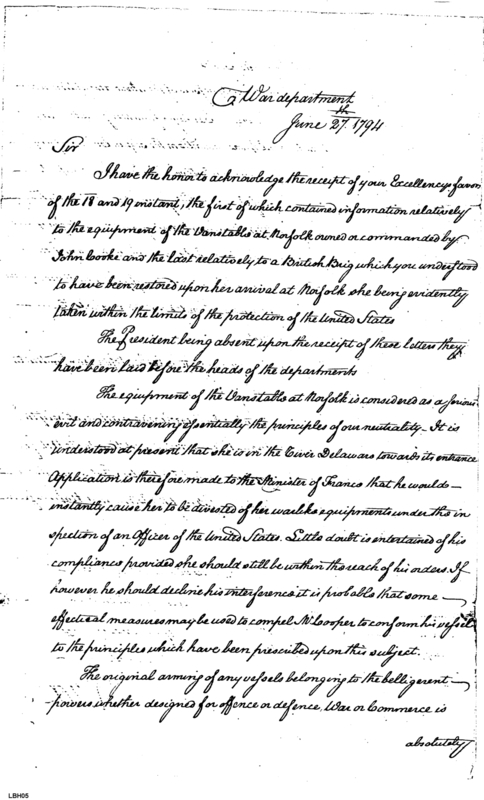 War department
June 27th 1794
Sir
I have the honor to acknowledge the receipt of your Excellencys favors
of the 18 and 19 instant, the first of which contained information relatively
to the equipment of the Vanstable at Norfolk owned or commanded by
John Cooke and the last relatively to a British Brig which you understood
to have been restored upon her arrival at Norfolk she being evidently
taken within the limits of the protection of the United States
The President being absent upon the receipt of these letters they
have been laid before the heads of the departments
The equipment of the Vanstable at Norfolk is considered as a serious
evil and contravening essentially the principles of our neutrality. It is
understood at present that she is in the River Delaware towards its entrance
Application is therefore made to the Minister of France that he would
instantly cause her to be divested of her warlike equipments under the in
spection of an Officer of the United States. Little doubt is entertained of his
compliance provided she should still be within the reach of his orders. If
however he should decline his interference it is probable that some
effectual measures may be used to compel Mr Cooper to conform his vessel
to the principles which have been prescribed upon this subject.
The original arming of any vessels belonging to the belligerent
powers whether designed for offence or defence, War or Commerce is
absolutely
LBH05